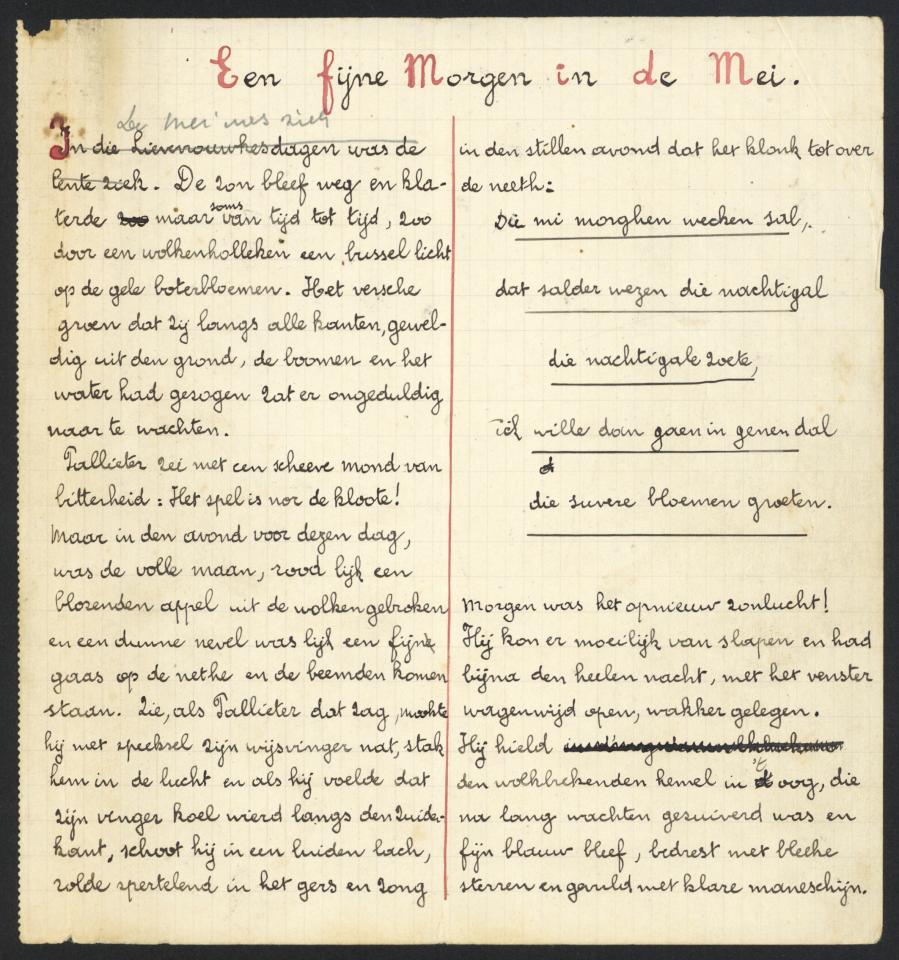 Een fijne Morgen in de Mei.
De mei was ziek
In die Lievevrouwkesdagen was de
lente ziek. De zon bleef weg en kla-
soms
terde zoo maar van tijd tot tijd, zoo
door een wolkenholleken een brussel licht
op de gele boterbloemen. Het versche
groen dat zij langs alle kanten, gewel-
dig uit den grond, de boomen en het
water had gezogen zat er ongeduldig
naar te wachten.
Pallieter zei met een scheeve mond van
bitterheid: Het spel is nor de kloote!
Maar in den avond voor dezen dag,
was de volle maan, rood lijk een
blozenden appel uit de wolken gebroken
en een dunne nevel was lijk een fijne
gaas op de nethe en de beemden komen
staan. Zie, als Pallieter dat zag, mookte
hij met speeksel zijn wijsvinger nat, stak
hem in de lucht en als hij voelde dat
zijn vinger koel wierd langs den Zuide-
kant, schoot hij in een luiden lach,
rolde spertelend in het gers en zong
in den stillen avond dat het klonk tot over
de neeth:
Die mi morghen wecken sal,
dat salder wezen die nachtigal
die nachtigale zoete,
ick wille dan gaen in genen dal
die suvere bloemen groeten.
Morgen was het opnieuw zonlucht!
Hij kon er moeilijk van slapen en had
bijna den heelen nacht, met het venster
wagenwijd open, wakker gelegen.
Hij hield
't
den wolkbekenden hemel in oog, die
na lang wachten gesuiverd was en
fijn blauw bleef, bedrest met bleeke
sterren en gevuld met klare maneschijn.